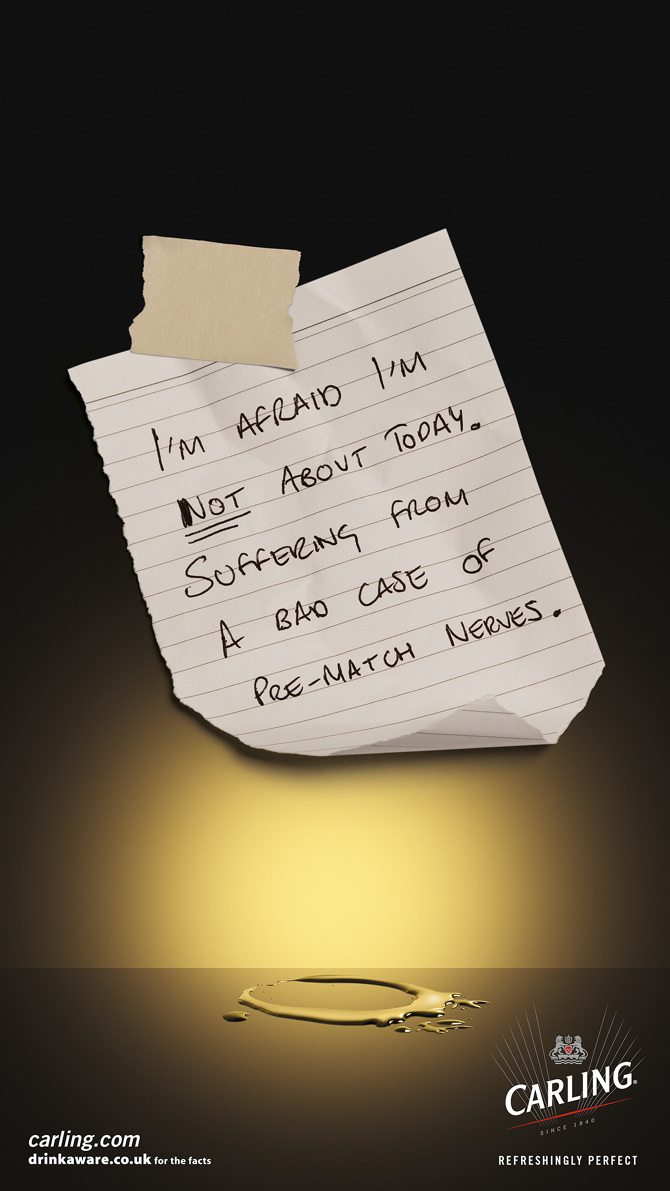 I'M AFRAID I'M
NOT ABOUT TODAY.
SUFFERING FROM
A BAD CASE OF
PRE-MATCH NERVES.
CARLING®
SINCE 1840
carling.com
drinkaware.co.uk for the facts
REFRESHINGLY PERFECT